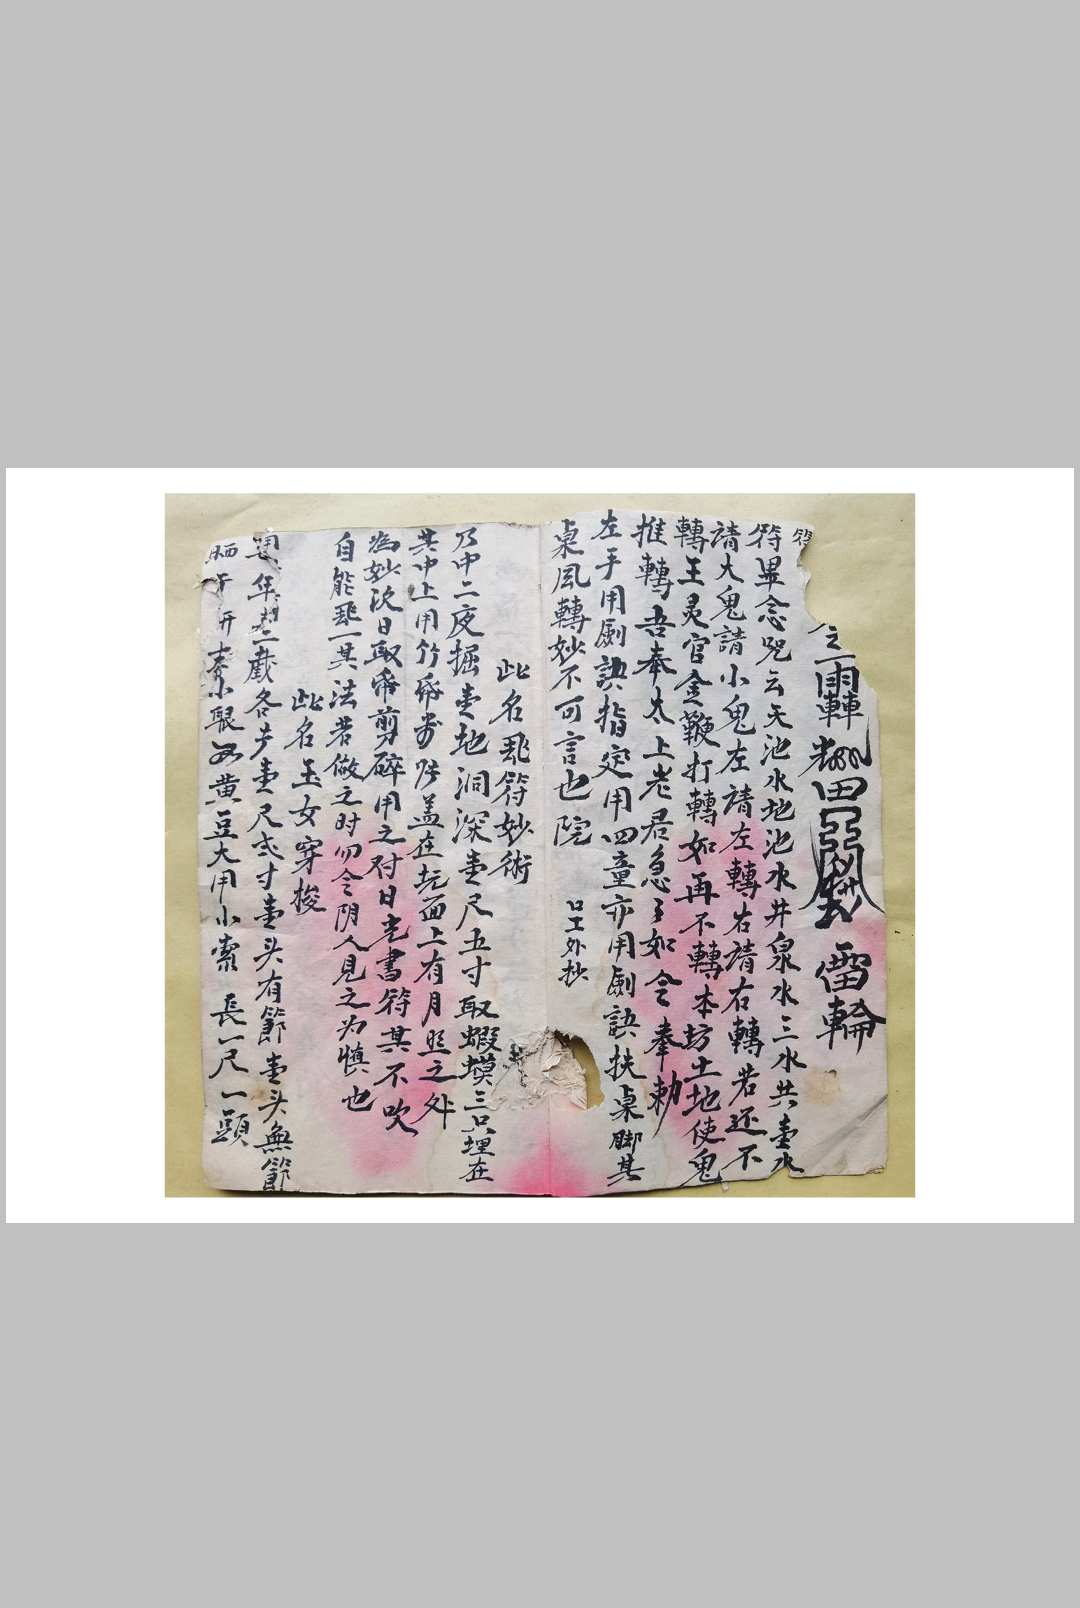 符
雷輪
符畢念咒云天池水地池水井泉水三水共壹水
請大鬼請小鬼左請左轉右請右轉若还不
轉王灵官金鞭打轉如再不轉本坊土地使鬼
推轉吾奉太上老君急々如令奉勅
左手用劍訣指定用四童亦用劍訣扶桌脚其
桌凤轉妙不可言也院
口工外抄
此名飛符妙術
乃中二夜掘壹地洞深壹尺五寸取蝦蟆三只埋在
其中上用竹盖在坑面上有月照之处
為妙次日取剪碎用之对日光書符其不吹
自能飛一其法若做之时勿令阴人見之为慎也
此名玉女穿梭
年二截各長壹尺弍寸壹头有節壹头無節
晒干小眼如黄豆大用小索長一尺一頭